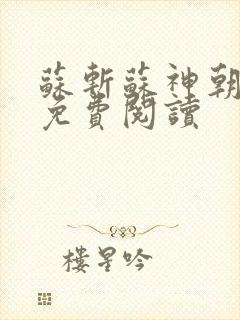 蘇斬蘇神朝
免費閱讀
樓星吟